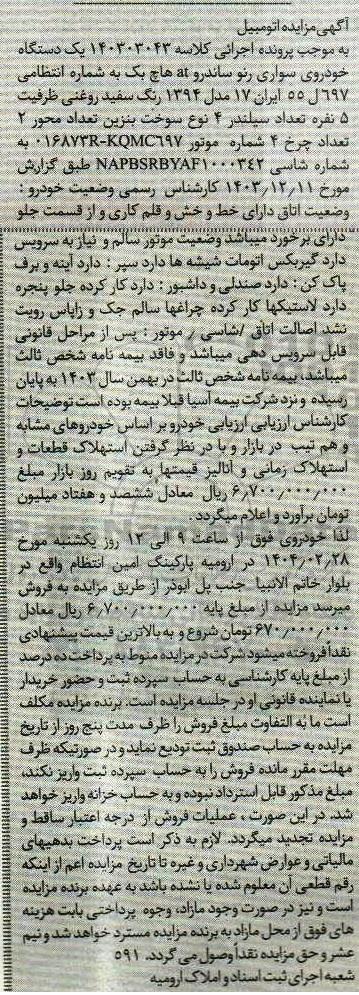 آگهی مزایده اتومبیل
به موجب پرونده اجرائی کلاسه ۱۴۰۳۰۳۰۴۳ یک دستگاه
خودروی سواری رنو ساندرو at هاچ بک به شماره انتظامی
۶۹۷ ل ۵۵ ایران ۱۷ مدل ۱۳۹۴ رنگ سفید روغنی ظرفیت
۵ نفره تعداد سیلندر ۴ نوع سوخت بنزین تعداد محور ۲
تعداد چرخ ۴ شماره موتور ۰۱۶۸۷۳R-KQMC۶۹۷ به
شماره شاسی NAPBSRBYAF۱۰۰۰۳۴۲ طبق گزارش
مورخ ۱۴۰۳/۱۲/۱۱ کارشناس رسمی وضعیت خودرو :
وضعیت اتاق دارای خط و خش و قلم کاری و از قسمت جلو
دارای برخورد میباشد وضعیت موتور سالم و نیاز به سرویس
دارد گیربکس اتومات شیشه ها دارد سپر : دارد آینه و برف
پاک کن : دارد صندلی و داشبور : دارد کار کرده جلو پنجره
دارد لاستیکها کار کرده چراغها سالم جک و زاپاس رویت
نشد اصالت اتاق /شاسی / موتور : پس از مراحل قانونی
قابل سرویس دهی میباشد و فاقد بیمه نامه شخص ثالث
میباشد، بیمه نامه شخص ثالث در بهمن سال ۱۴۰۳ به پایان
رسیده و نزد شرکت بیمه آسیا قبلا بیمه بوده است توضیحات
کارشناس ارزیابی ارزیابی خودرو بر اساس خودروهای مشابه
و هم تیپ در بازار و با در نظر گرفتن استهلاک قطعات و
استهلاک زمانی و آنالیز قیمتها به تقویم روز بازار مبلغ
۶/۷۰۰/۰۰۰/۰۰۰ ریال معادل ششصد و هفتاد میلیون
تومان برآورد و اعلام میگردد .
لذا خودروی فوق از ساعت ۹ الی ۱۲ روز یکشنبه مورخ
۱۴۰۴/۰۲/۲۸ در ارومیه پارکینگ امین انتظام واقع در
بلوار خاتم الانبیا جنب پل ابوذر از طریق مزایده به فروش
میرسد مزایده از مبلغ پایه ۶/۷۰۰/۰۰۰/۰۰۰ ریال معادل
۶۷۰/۰۰۰/۰۰۰ تومان شروع و به بالاترین قیمت پیشنهادی
نقداً فروخته میشود شرکت در مزایده منوط به پرداخت ده درصد
از مبلغ پایه کارشناسی به حساب سپرده ثبت و حضور خریدار
یا نماینده قانونی او در جلسه مزایده است. برنده مزایده مکلف
است ما به التفاوت مبلغ فروش را ظرف مدت پنج روز از تاریخ
مزایده به حساب صندوق ثبت تودیع نماید و در صورتیکه ظرف
مهلت مقرر مانده فروش را به حساب سپرده ثبت واریز نکند،
مبلغ مذکور قابل استرداد نبوده و به حساب خزانه واریز خواهد
شد. در این صورت ، عملیات فروش از درجه اعتبار ساقط و
مزایده تجدید میگردد. لازم به ذکر است پرداخت بدهیهای
مالیاتی و عوارض شهرداری و غیره تا تاریخ مزایده اعم از اینکه
رقم قطعی آن معلوم شده یا نشده باشد به عهده برنده مزایده
است و نیز در صورت وجود مازاد، وجوه پرداختی بابت هزینه
های فوق از محل مازاد به برنده مزایده مسترد خواهد شد و نیم
عشر و حق مزایده نقداً وصول می گردد. ۵۹۱
شعبه اجرای ثبت اسناد و املاک ارومیه